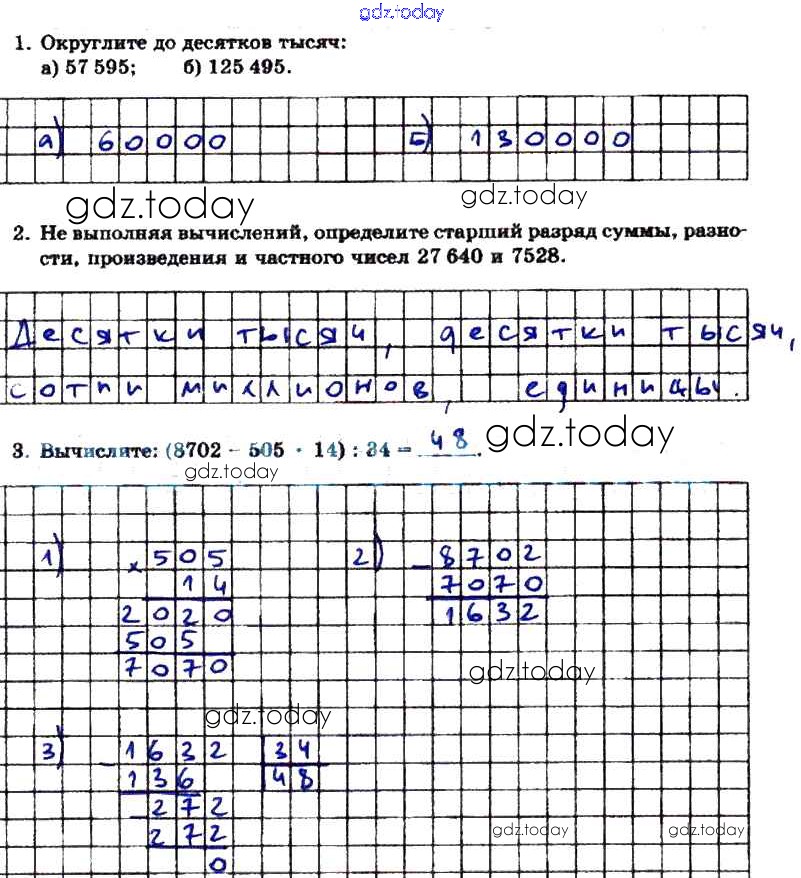 gdz.today
1. Округлите до десятков тысяч:
а) 57 595; б) 125 495.
а) 60000 б) 130000
gdz.today
gdz.today
2. Не выполняя вычислений, определите старший разряд суммы, разно-
сти, произведения и частного чисел 27 640 и 7528.
Десятки тысяч, десятки тысяч,
сотни миллионов, единицы.
3. Вычислите: (8702 – 505 · 14) : 34 = 48.
gdz.today
gdz.today
1) × 505 2) - 8702
14 7070
2020 1632
505
7070
gdz.today
gdz.today
3) - 1632 34
136 48
- 272
272
0
gdz.today
gdz.today